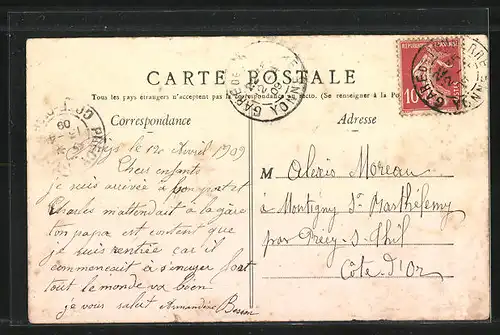 CARTE POSTALE
Tous les pays étrangers n'acceptent pas la correspondance au recto. (Se renseigner à la Po
Correspondance
Adresse
le 12 Avril 1909
Chers enfants
je suis arrivée a bon port et
Charles m'attendait à la gare
ton papa est content que
je suis rentrée car il
commencait à s'ennuyer fort
tout le monde va bien
je vous salut Armandine
M Alexis Moreau
à Montigny St Barthélemy
par Précy-s-Thil
Côte-d'Or
10